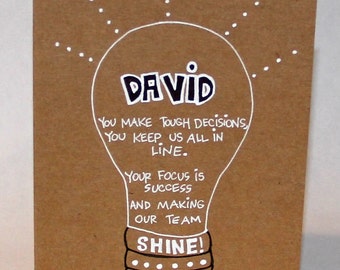 DAVID
YOU MAKE TOUGH DECISIONS,
YOU KEEP US ALL IN
LINE.
YOUR FOCUS IS
SUCCESS
AND MAKING
OUR TEAM
SHINE!